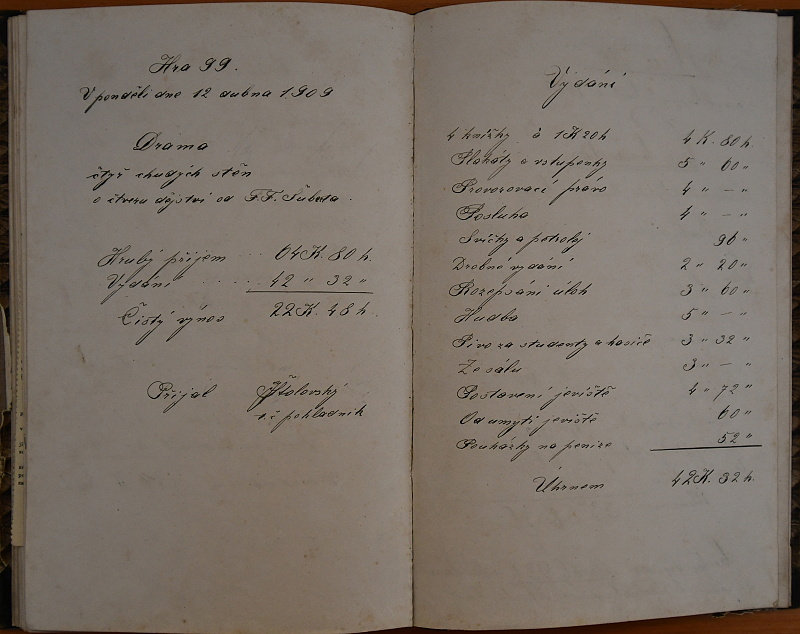 Hra 99.
V pondělí dne 12 dubna 1909
Drama
čtyř chudých stěn
o čtveru dějství od F. F. Šuberta.
Hrubý příjem . . 64 K. 80 h.
Vydání . . . . . 42 " 32 "
Čistý výnos 22 K. 48 h
Přijal Štolovský
t.č pokladník
Vydání
4 knížky à 1 K 20 h 4 K. 80 h.
Plakáty a vstupenky 5 " 60 "
Provozovací právo 4 " — "
Posluha 4 " — "
Svíčky a petrolej 96 "
Drobné vydání 2 " 20 "
Rozepsání úloh 3 " 60 "
Hudba 5 " — "
Pivo za studenty a hasiče 3 " 32 "
Ze sálu 3 " — "
Postavení jeviště 4 " 72 "
Od umytí jeviště 60 "
Poukázky na peníze 52 "
Úhrnem 42 K. 32 h.